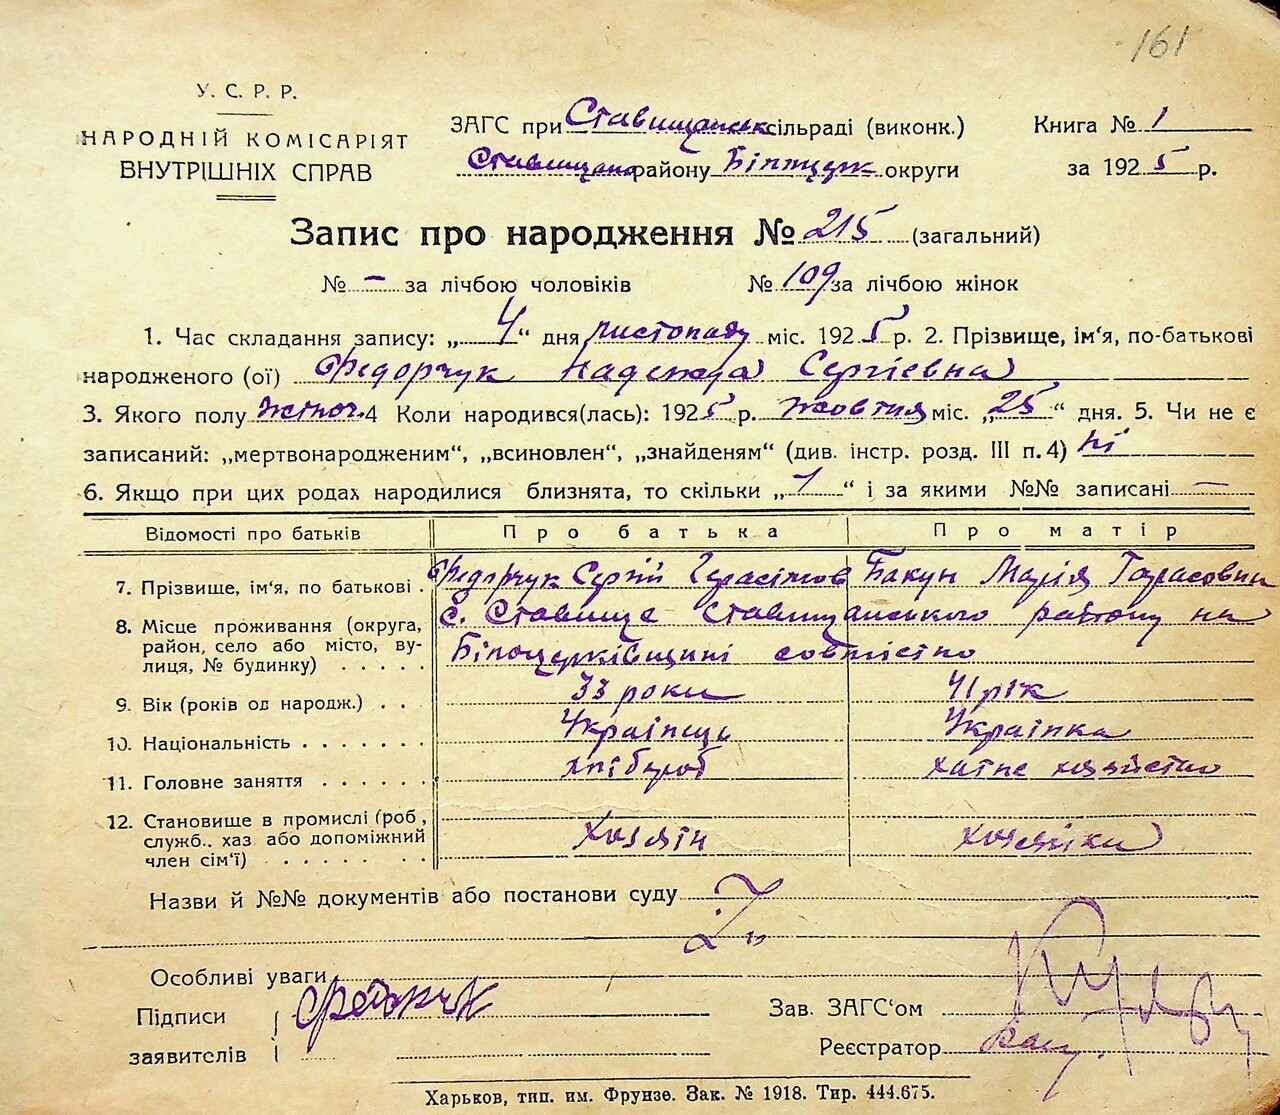 161
У. С. Р. Р.
НАРОДНІЙ КОМІСАРІЯТ
ВНУТРІШНІХ СПРАВ
ЗАГС при Ставищанськ сільраді (виконк.)
Ставищано району Білоцерк округи
Книга № 1
за 1925 р.
Запис про народження № 215 (загальний)
№ — за лічбою чоловіків № 109 за лічбою жінок
1. Час складання запису: „4“ дня листопаду міс. 1925 р. 2. Прізвище, ім‘я, по-батькові
народженого (ої) Федорчук Надежда Сергієвна
3. Якого полу жіноч. 4 Коли народився(лась): 1925 р. жовтня міс. „25“ дня. 5. Чи не є
записаний: „мертвонародженим“, „всиновлен“, „знайденям“ (див. інстр. розд. III п. 4) ні
6. Якщо при цих родах народилися близнята, то скільки „1“ і за якими №№ записані —
Відомості про батьків Про батька Про матір
7. Прізвище, ім‘я, по батькові . Федорчук Сергій Герасімов Бакун Марія Тарасовна
8. Місце проживання (округа, район, село або місто, вулиця, № будинку) . . . . . с. Ставище Ставищанського району на
Білоцерківщині совмістно
9. Вік (років од народж.) . . . 33 роки 41 рік
10. Національність . . . . . . . Українець Українка
11. Головне заняття . . . . . . хлібороб хатнє хозяйство
12. Становище в промислі (роб, служб.. хаз або допоміжний член сім‘ї) . . . . . . хозяін хозяйка
Назви й №№ документів або постанови суду
Особливі уваги
Підписи
заявителів
Федорчук
Зав. ЗАГС‘ом
Реєстратор
Харьков, тип. им. Фрунзе. Зак. № 1918. Тир. 444.675.